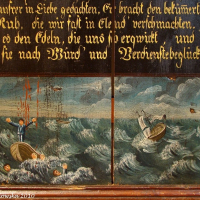 unsrer in Liebe gedachten, Er bracht den bekümert
Ruh, die wir fast in Elend verschmachten.
es den Edeln, die uns so erqwikt, und
sie nach Würd' und Verdienste beglück